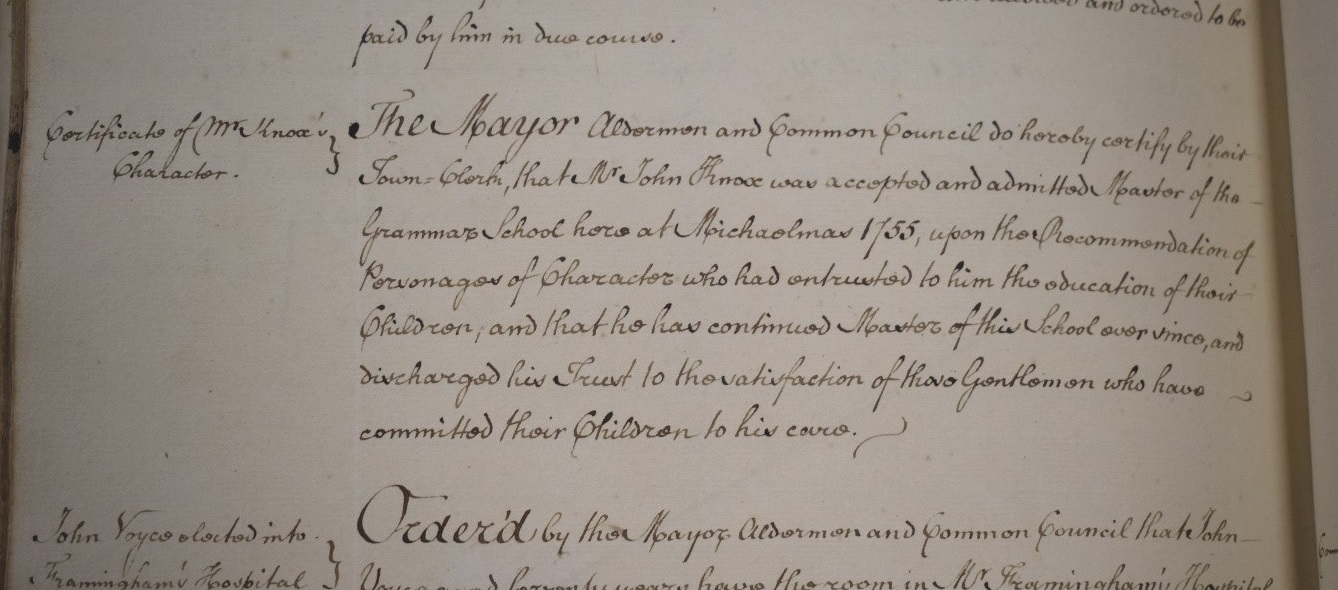 and ordered to be
paid by him in due course.
Certificate of Mr. Knox's
Character.
The Mayor Aldermen and Common Council do hereby certify by their
Town-Clerk, that Mr John Knox was accepted and admitted Master of the
Grammar School here at Michaelmas 1755, upon the Recommendation of
Personages of Character who had entrusted to him the education of their
Children, and that he has continued Master of this School ever since, and
discharged his Trust to the satisfaction of those Gentlemen who have
committed their Children to his care.
John Voyce elected into
Framingham's Hospital
Order'd by the Mayor Aldermen and Common Council that John
Voyce aged seventy years have the room in Mr Framingham's Hospital